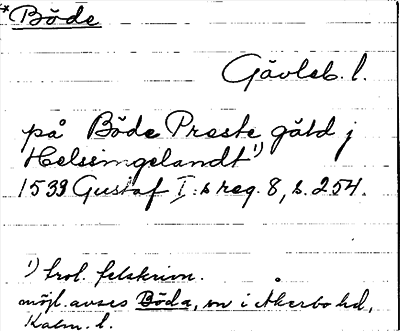 *Böde
Gävleb. l.
på Böde Preste gåld j
Helsingelandt¹)
1533 Gustaf I:s reg. 8, s. 254.
¹) trol. felskrivn.
möjl. avses Böda, sn i Åkerbo hd,
Kalm. l.